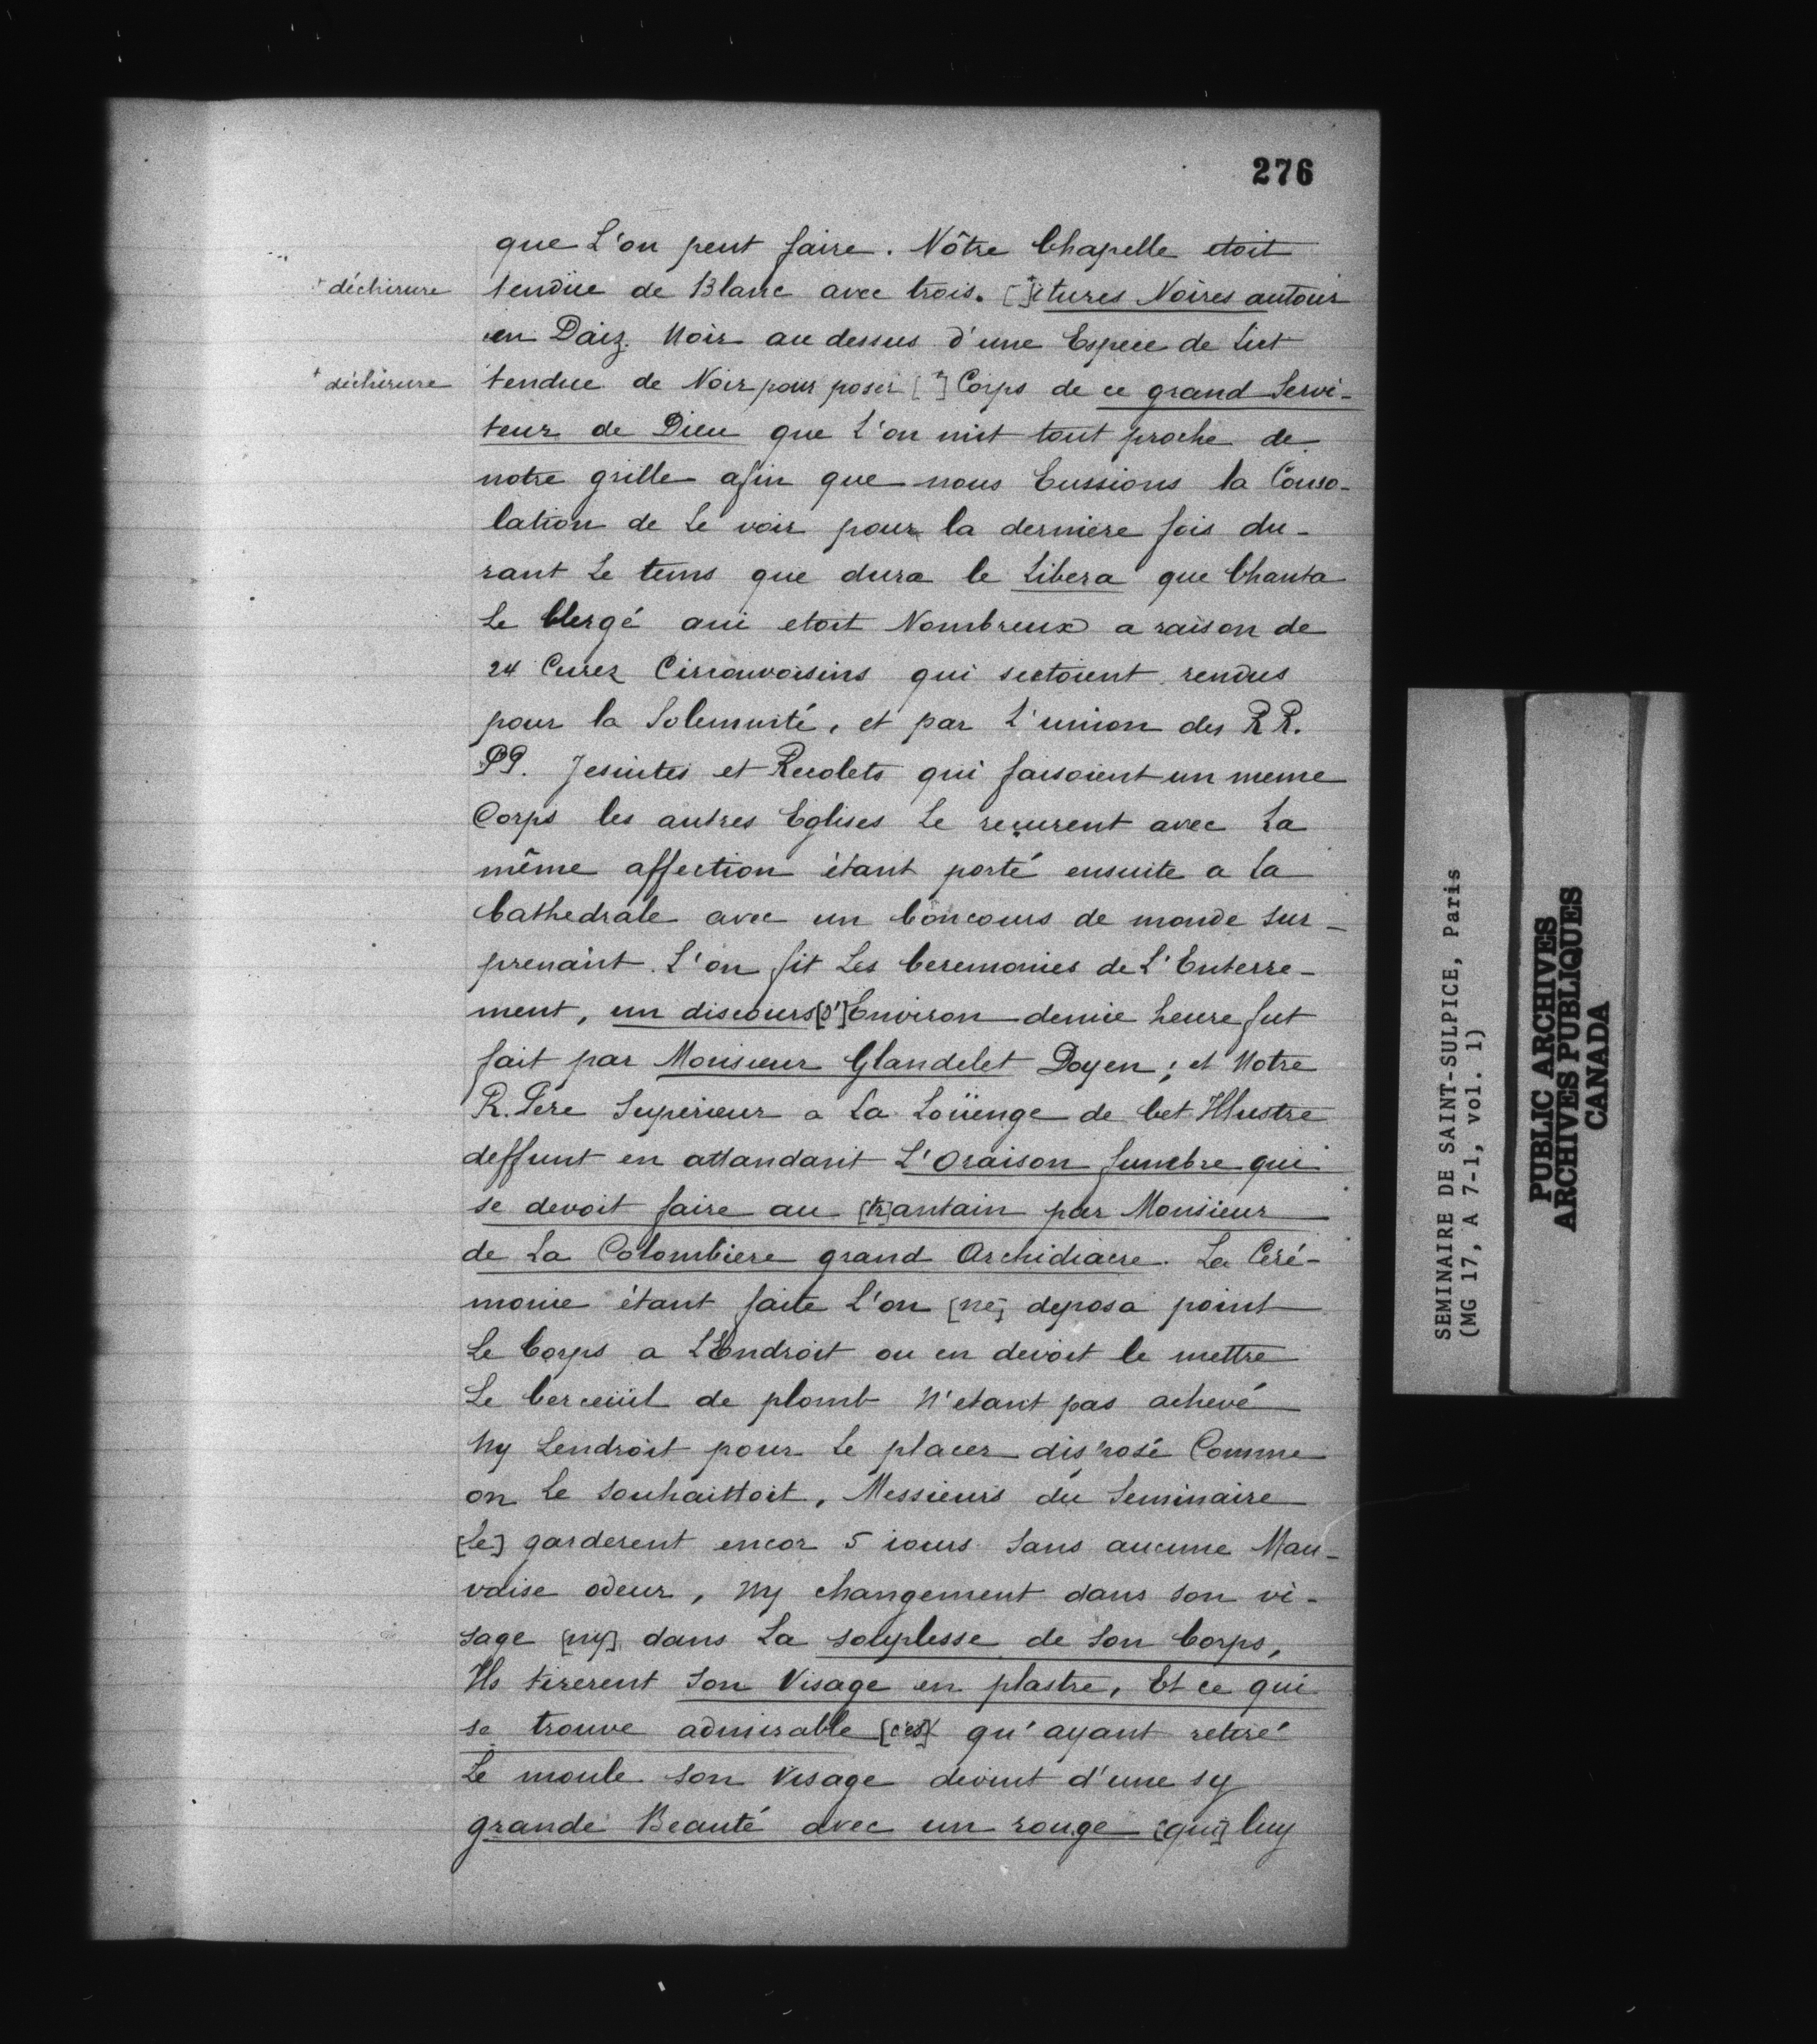 276
que L'on peut faire. Nôtre Chapelle etoit
+ déchirure
tendüe de Blanc avec trois. [+]itures Noires autour
un Daiz. Noir au dessus d'une Espece de Lict
+ déchirure
tendue de Noir pour poser [+] Corps de ce grand Servi-
teur de Dieu que L'on mit tout proche de
notre grille afin que nous Eussions la Conso-
lation de Le voir pour la derniere fois du-
rant Le tems que dura le Libera que Chanta
Le Clergé qui etoit Nombreux a raison de
24 Curez Circonvoisins qui sectoient rendus
pour la Solemnité, et par L'union des RR.
PP. Jesuites et Recolets qui faisoient un meme
Corps les autres Eglises Le reçurent avec La
même affection étant porté ensuite a la
Cathedrale avec un Concours de monde sur-
prenant. L'on fit Les Ceremonies de L'Enterre-
ment, un discours [d']Environ demie heure fut
fait par Monsieur Glandelet Doyen; et Notre
R. Pere Superieur a La Loüenge de Cet Illustre
deffunt en attandant L'Oraison funebre qui
se devoit faire au [tr]antain par Monsieur
de La Colombiere grand Archidiacre. La Céré-
monie étant faite L'on [ne] deposa point
Le Corps a L'Endroit ou en devoit le mettre
Le Cerceüil de plomb N'etant pas achevé
Ny Lendroit pour Le placer disposé Comme
on Le Souhaittoit, Messieurs du Seminaire
[Le] garderent encor 5 iours Sans aucune Mau-
vaise odeur, ny changement dans Son vi-
sage [ny] dans La souplesse de Son Corps,
Ils tirerent Son Visage en plastre, Et ce qui
se trouve admirable [c'es]t qu'ayant retiré
Le moule Son Visage devint d'une sy
grande Beauté avec un rouge [qui] luy
SEMINAIRE DE SAINT-SULPICE, Paris
(MG 17, A 7-1, vol. 1)
PUBLIC ARCHIVES
ARCHIVES PUBLIQUES
CANADA